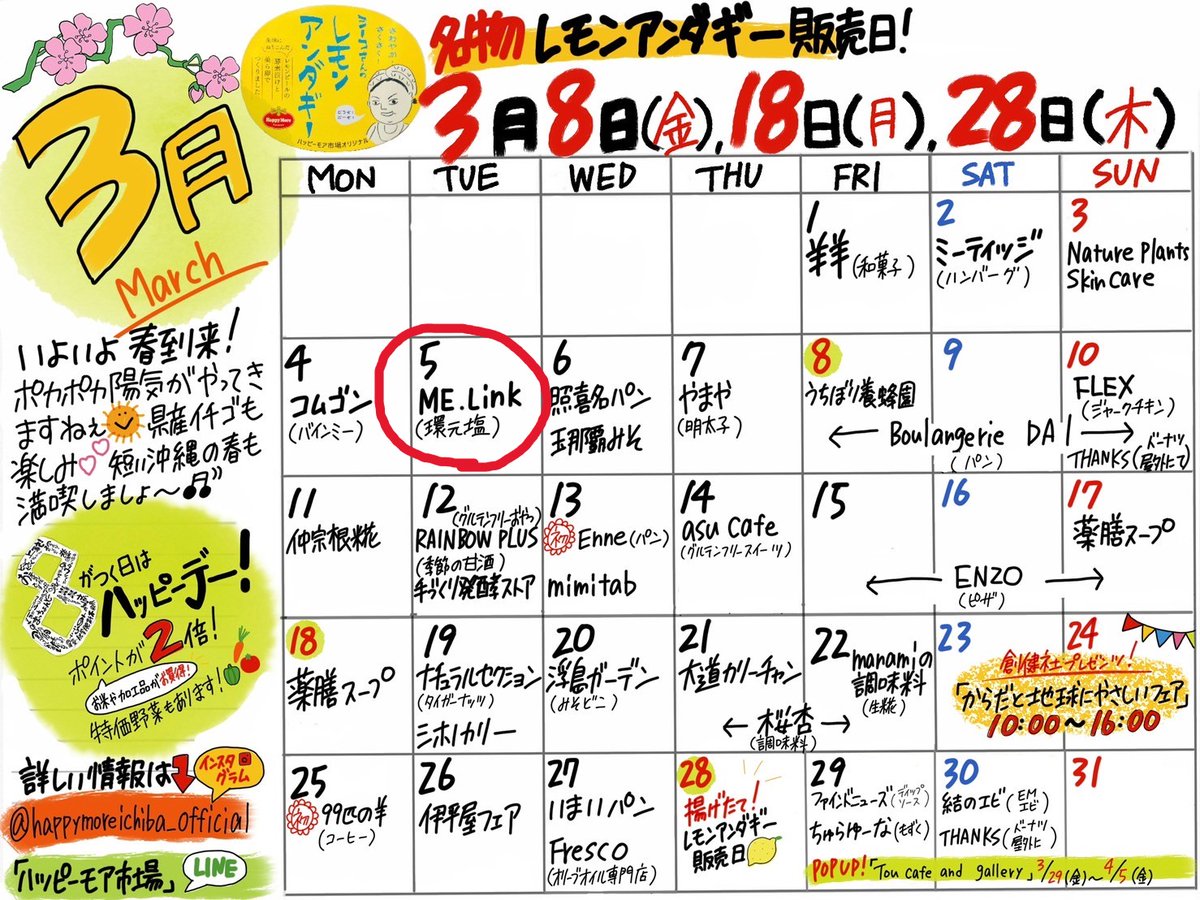 3月
March
いよいよ 春到来!
ポカポカ陽気がやってき
ますねぇ 県産イチゴも
楽しみ 短い沖縄の春も
満喫しましょ〜♫"
8がつく日は
ハッピーデー!
ポイントが2倍!
お米や加工品がお買得!
特価野菜もあります!
詳しい情報は
インスタグラム
@happymoreichiba_official
「ハッピーモア市場」 LINE
さわやか
さくさく
レモン
アンダギー
つくりました
Happy More
ハッピーモア市場オリジナル
名物 レモンアンダギー販売日!
3月8日(金),18日(月),28日(木)
MON TUE WED THU FRI SAT SUN
1
羊羊(和菓子)
2
ミーティッジ
(ハンバーグ)
3
Nature Plants
Skin care
4
コムゴン
(バインミー)
5
ME.Link
(環元塩)
6
照喜名パン
玉那覇みそ
7
やまや
(明太子)
8
うちぼり養蜂園
9
10
FLEX
(ジャークチキン)
Boulangerie DAI
(パン)
THANKS(ドーナツ屋外にて)
11
仲宗根糀
12
(グルテンフリーおやつ)
RAINBOW PLUS
(季節の甘酒)
手づくり発酵ストア
13
Enne(パン)
mimitab
14
asu cafe
(グルテンフリースイーツ)
15
16
17
薬膳スープ
ENZO
(ピザ)
18
薬膳スープ
19
ナチュラルセクション
(タイガーナッツ)
ミホノカリー
20
浮島ガーデン
(みそどこ)
21
大道カリーチャン
22
manamiの
調味料
(生糀)
桜杏
(調味料)
23
24
創健社プレゼンツ!
「からだと地球にやさしいフェア」
10:00〜16:00
25
99匹の羊
(コーヒー)
26
伊平屋フェア
27
いまいパン
Fresco
(オリーブオイル専門店)
28
揚げたて!
レモンアンダギー
販売日
29
ファインドニューズ(ディップソース)
ちゅらゆーな(もずく)
30
結のエビ(EMエビ)
THANKS(ドーナツ屋外に)
31
POPUP!「Tou cafe and gallery」3/29(金)〜4/5(金)